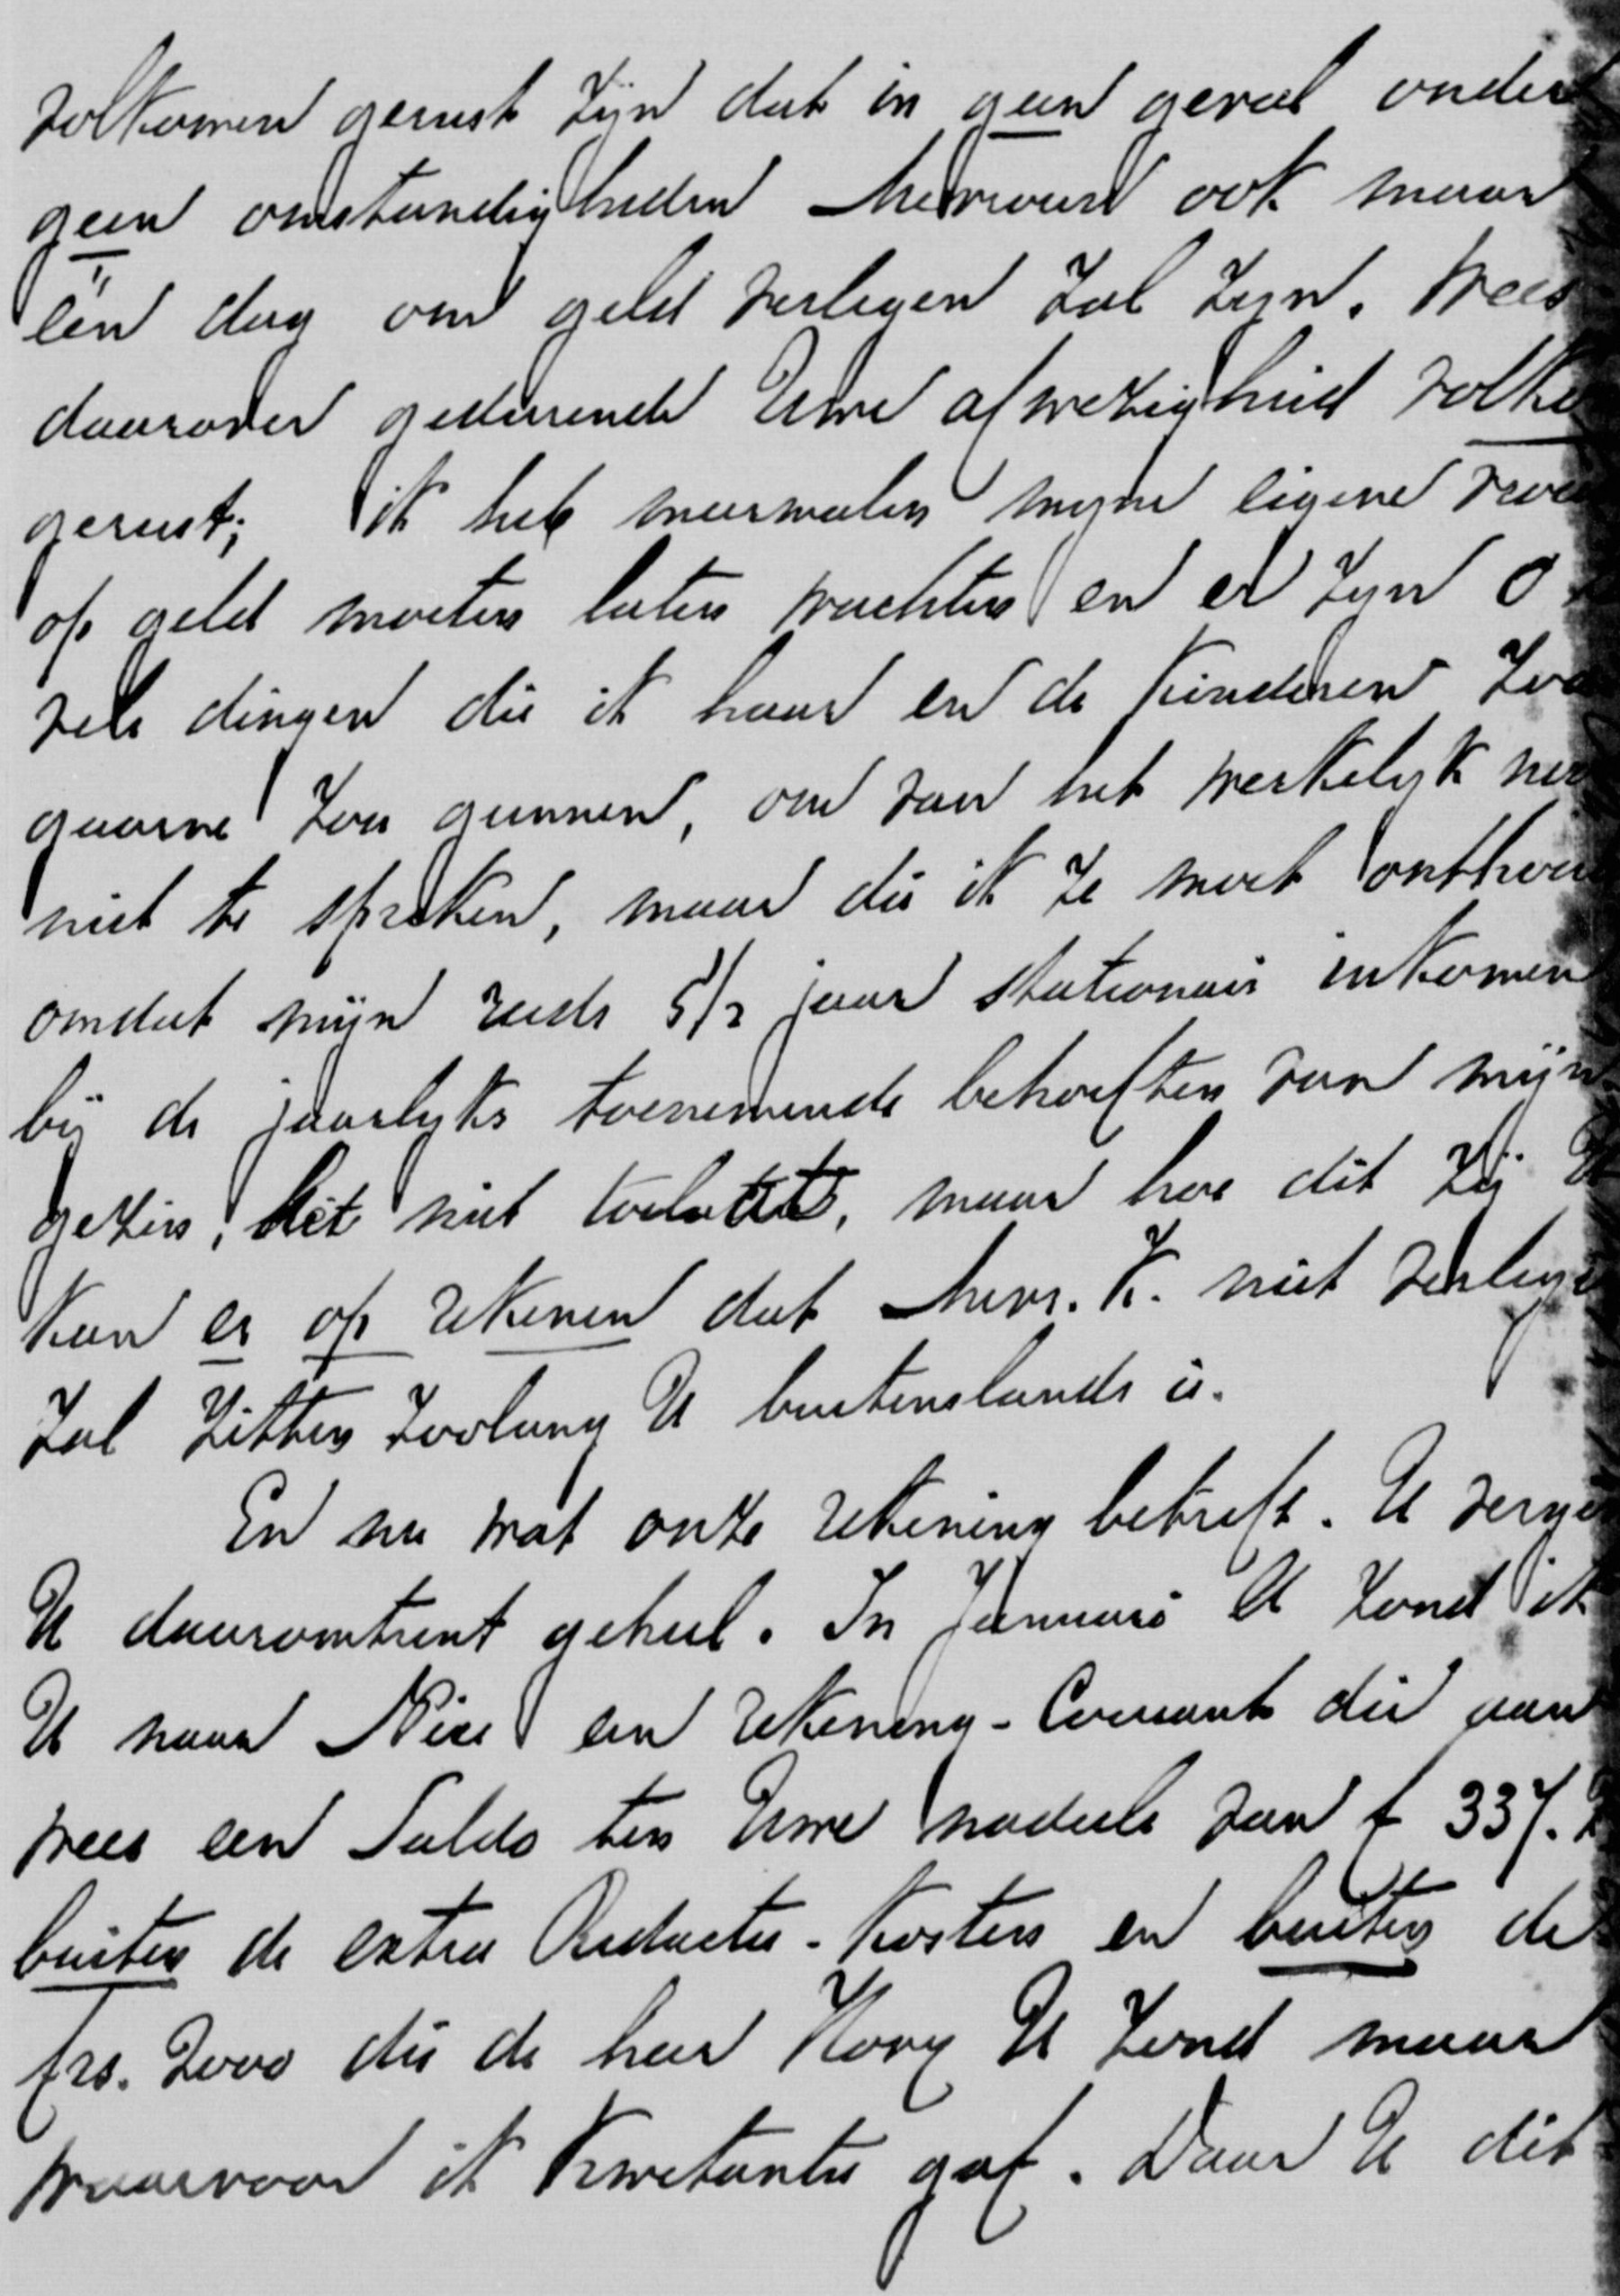 volkomen gerust zijn dat in geen geval onder
geen omstandigheden Mevrouw ook maar
één dag om geld verlegen zal zijn. Wees
daarover gedurende Uwe afwezigheid volko
gerust; ik heb meermalen mijne eigene vrou
op geld moeten laten wachten en er zijn o
vele dingen die ik haar en de kinderen zoo
gaarne zou gunnen, om van het werkelyk noo
niet te spreken, maar die ik ze moet onthou
omdat mijn reeds 5½ jaar stationair inkomen
bij de jaarlyks toenemende behoeften van mijn
gezin, het niet toelaat, maar hoe dit zij U
kan er op rekenen dat Mevr. K. niet verlege
zal zitten zoolang U buitenslands is.
En nu wat onze rekening betreft. U verge
U daaromtrent geheel. In Januari ll zond ik
U naar Nice een rekening-Courant die aan
wees een Saldo ten Uwe nadeele van f 337.
buiten de extra Redactie-kosten en buiten de
frs. 2000 die de heer Kooy U zond maar
waarvoor ik Kwitantie gaf. Daar U dit